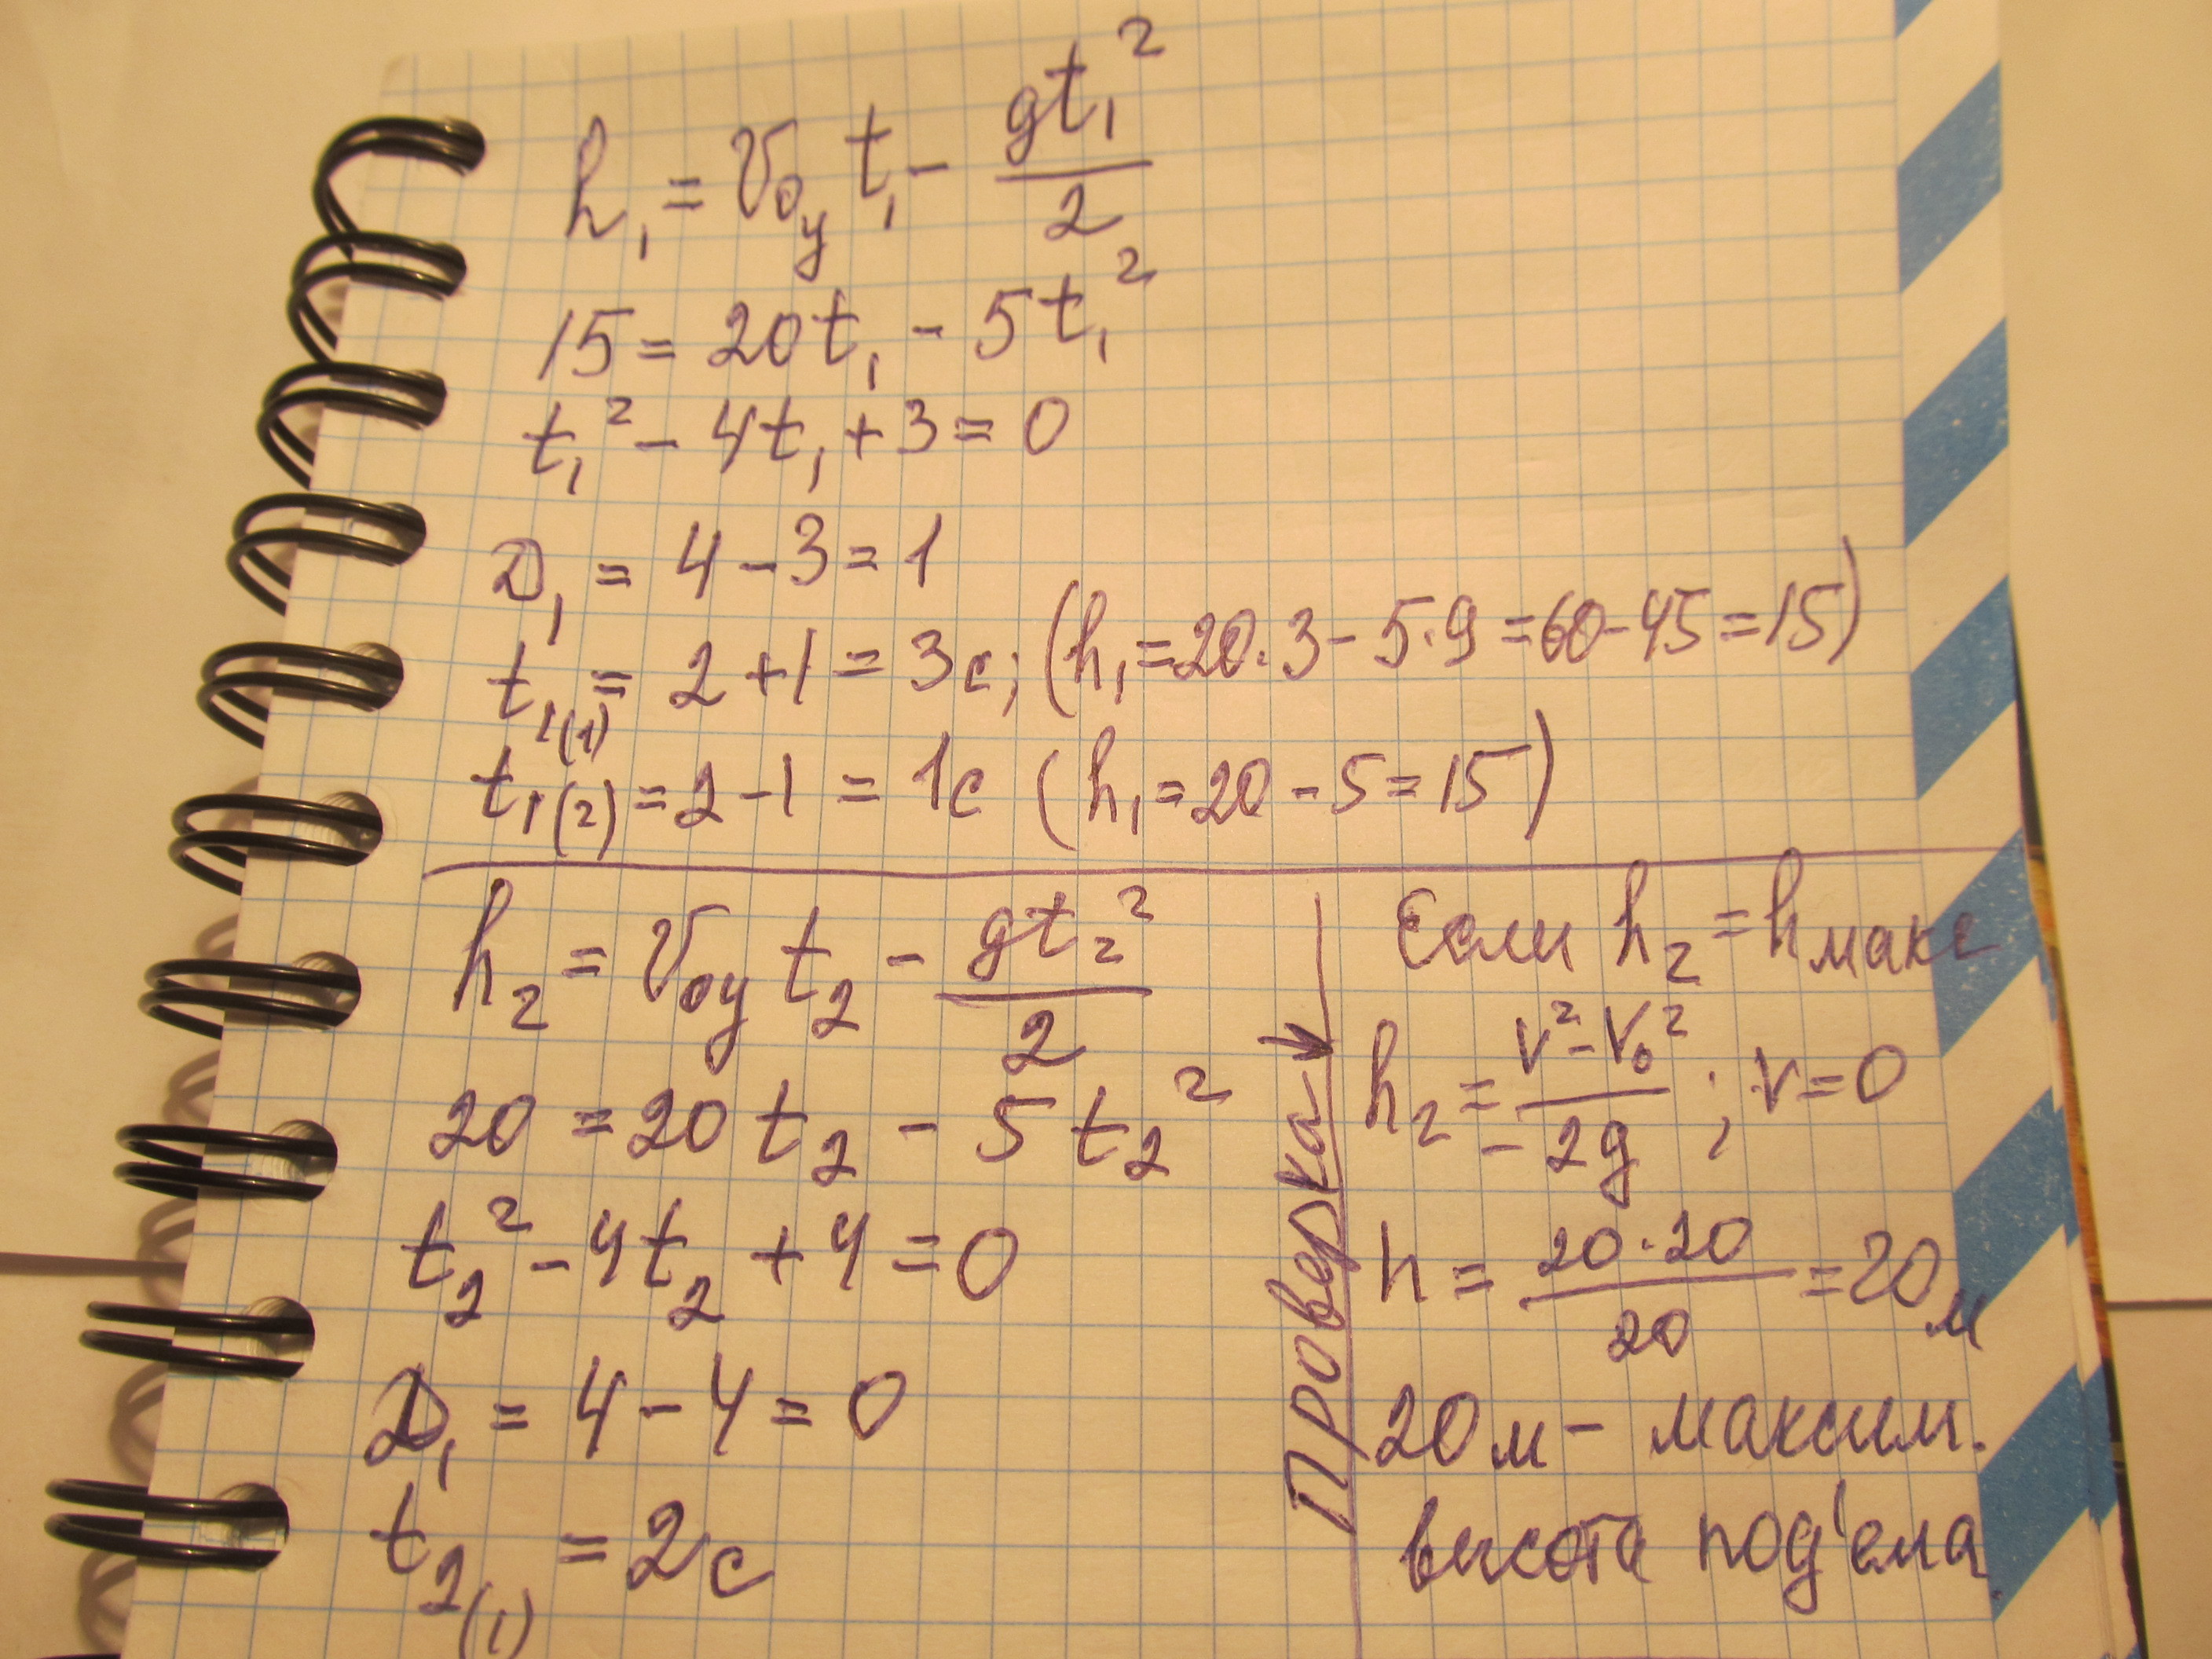 h₁ = V₀y t₁ - gt₁²/2
15 = 20t₁ - 5t₁²
t₁² - 4t₁ + 3 = 0
D₁ = 4 - 3 = 1
t₁(1) = 2 + 1 = 3с; (h₁ = 20·3 - 5·9 = 60 - 45 = 15)
t₁(2) = 2 - 1 = 1с (h₁ = 20 - 5 = 15)
h₂ = V₀y t₂ - gt₂²/2
20 = 20t₂ - 5t₂²
t₂² - 4t₂ + 4 = 0
D₁ = 4 - 4 = 0
t₂(1) = 2с
Проверка →
Если h₂ = hмакс
h₂ = V² - V₀²/-2g ; V = 0
h = 20·20/20 = 20м
20м - максим.
высота под'ема